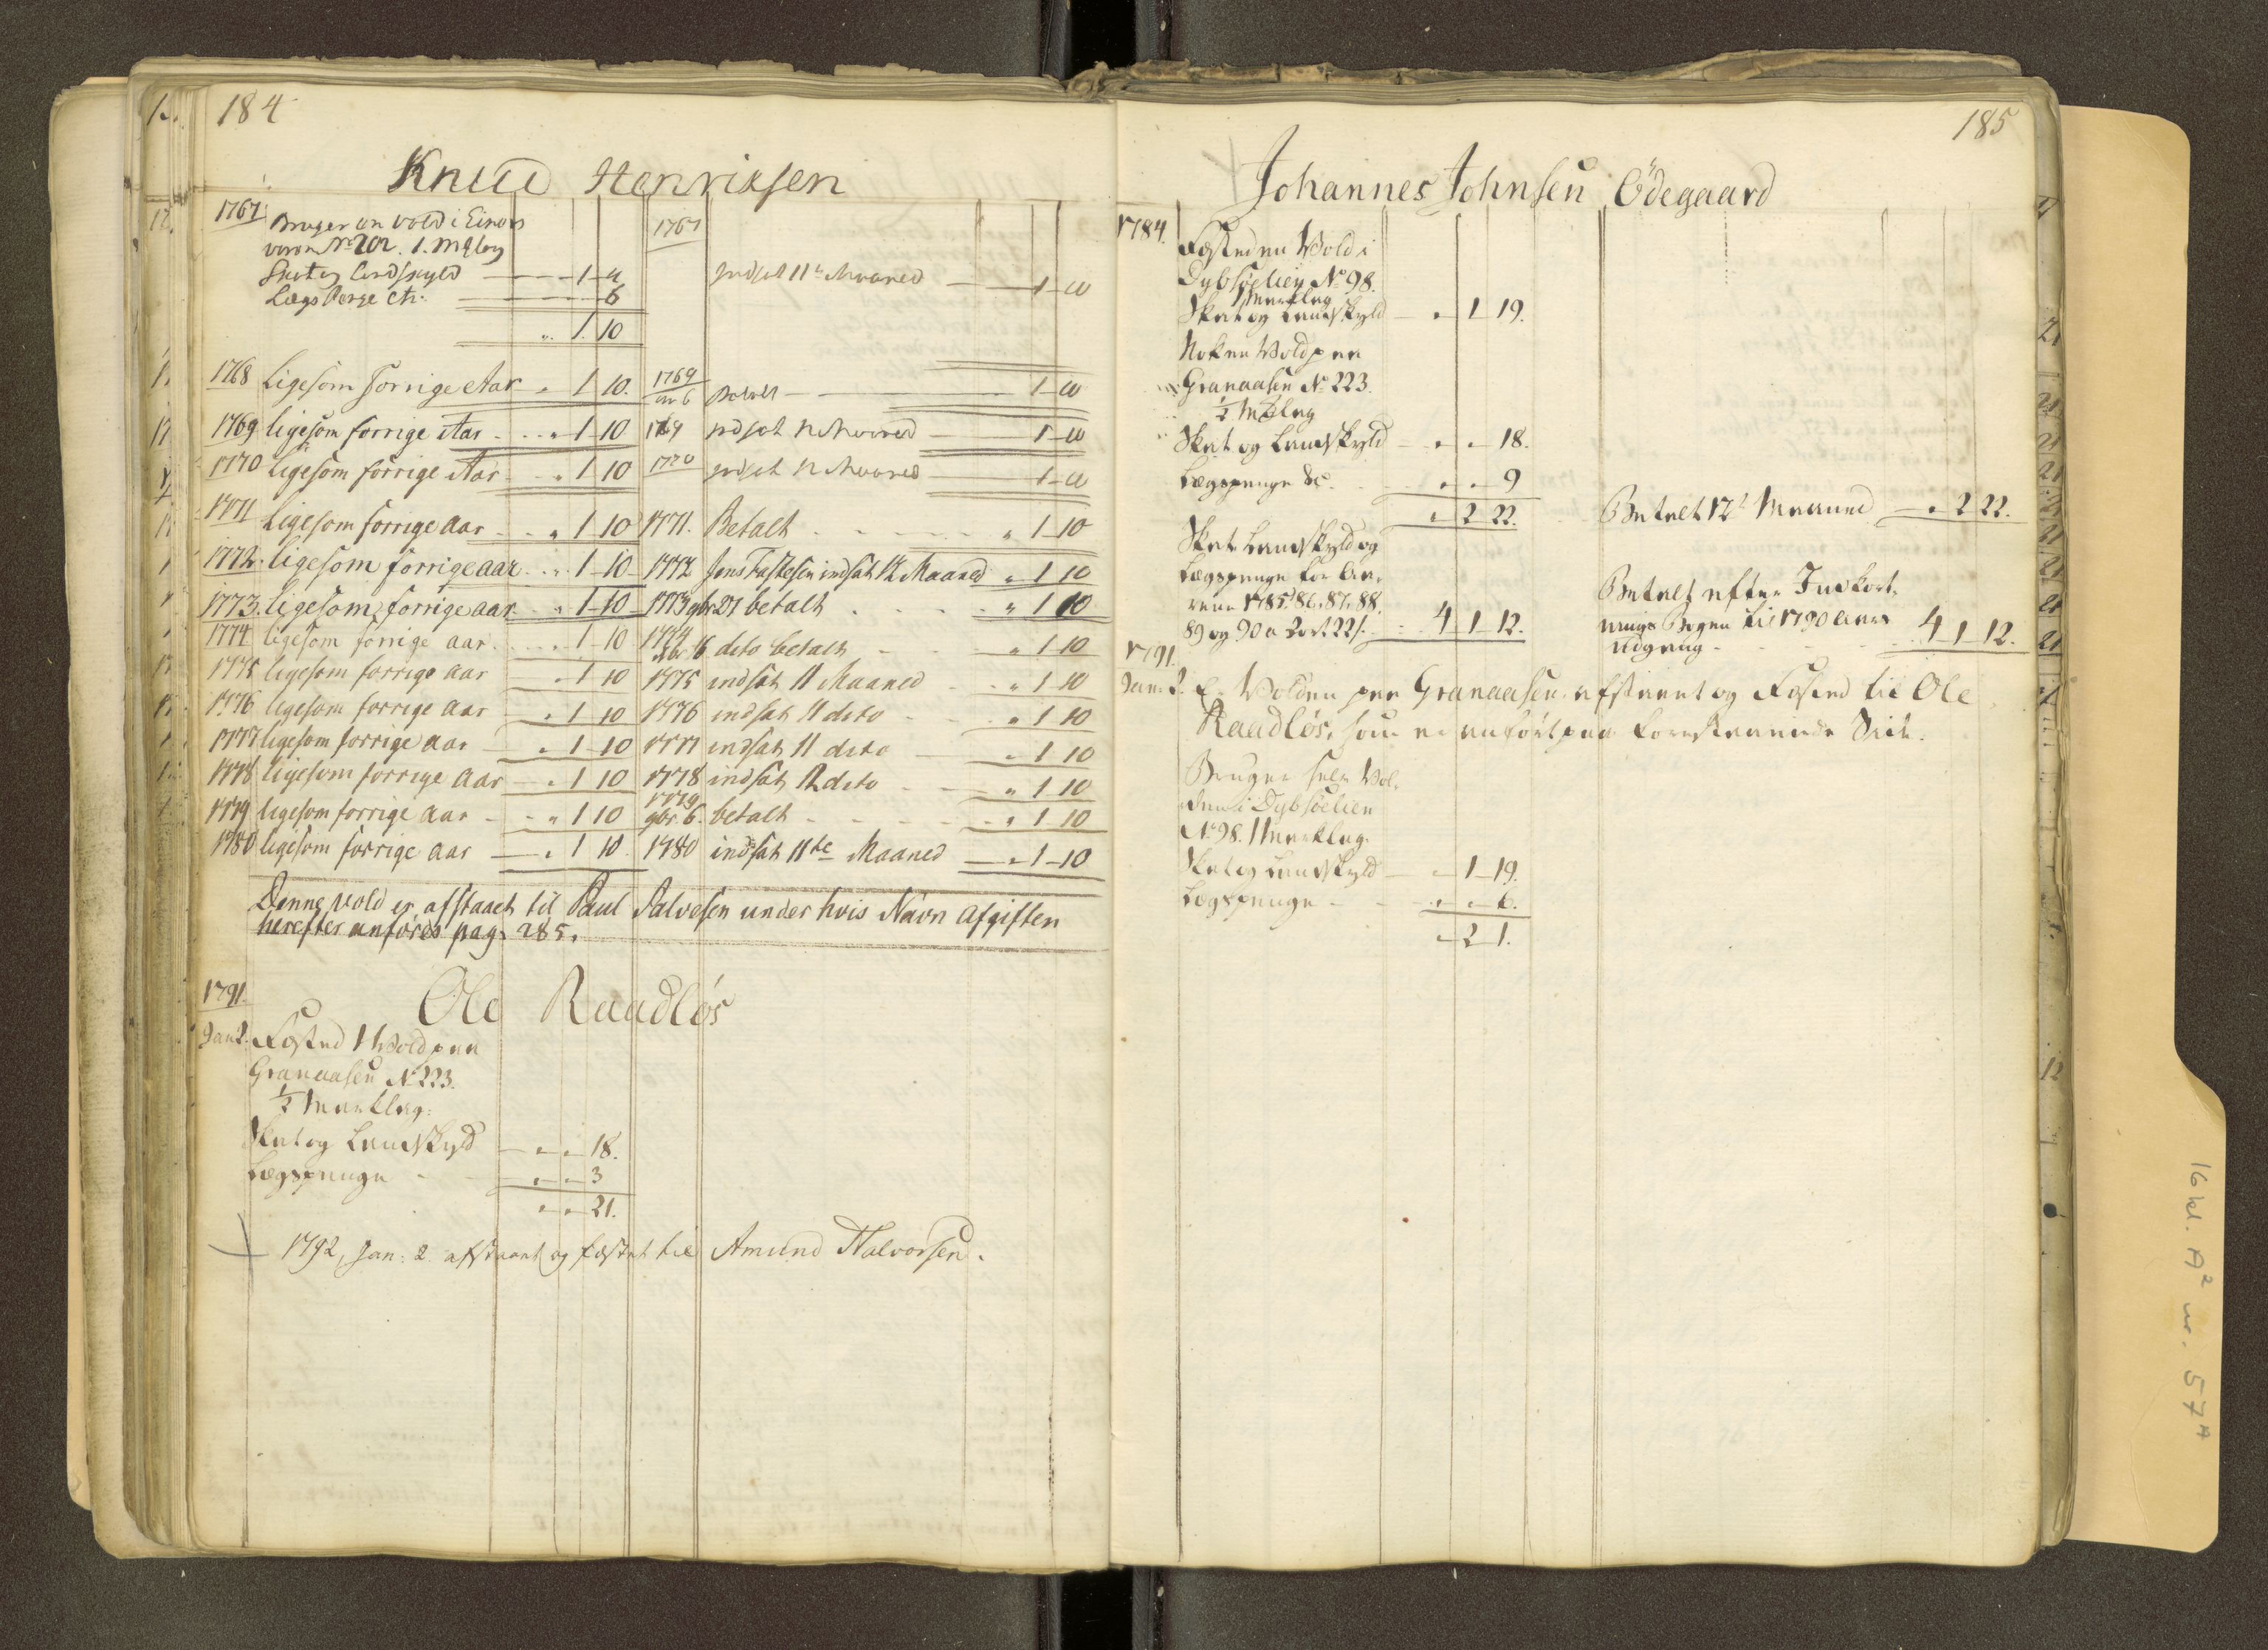 184
Knud Henriksen
1767 Bruger en vold i Einers
No 202. 1. Mæleg
Skat og Landskyld — 1 4
Lægs Penge etc. — 6
" 1 10
1767
indsat 11te Maaned — 1 10
1768 Ligesom forrige Aar " 1 10. 1769 Betalt — 1 10
1769 ligesom forrige Aar " 1 10 1769 indsat 12 Maaned 1 10
1770 Ligesom forrige Aar " 1 10 1770 indsat 12 Maaned 1 10
1771 Ligesom forrige aar " 1 10 1771. Betalt " 1 10
1772. ligesom forrige aar " 1 10 1772 Jens Fastesen indsat 12 Maaned " 1 10
1773. ligesom forrige aar " 1 10 1773 9br 27 betalt " 1 10
1774 ligesom forrige aar. " 1 10 1774 16. dito betalt " 1 10
1775 ligesom forrige aar " 1 10 1775 indsat 11 Maaned " 1 10
1776 ligesom forrige aar " 1 10 1776 indsat 11 dito " 1 10
1777 ligesom forrige aar " 1 10 1777 indsat 11 dito " 1 10
1778 ligesom forrige aar " 1 10 1778 indsat 12 dito " 1 10
1779 ligesom forrige aar " 1 10 1779 9br 6. betalt " 1 10
1780 ligesom forrige aar " 1 10 1780 indsat 11te Maaned " 1 10
Denne vold er afstaaet til Paul Salvesen under hvis Navn Afgiften
herefter anføres pag: 285.
1791.
Ole Raadlös
Jan 2. Fæsted 1 Vold paa
Granaasen No 223.
1/2 Mærkleg:
Skat og Landskyld " " 18.
Lægspenge " " 3
" " 21.
1792, Jan: 2 afstaaet og fæstet til Amund Halvorsen.
185
Johannes Johnsen Ödegaard
1784.
Fæsted en Wold i
Dybsöelien No 98.
1 Mærkleg
Skat og Landskyld " 1 19.
Nok en Wold paa
Granaasen No 223.
1/2 Mæleg
Skat og Landskyld " " 18.
Lægspenge &c. " " 9
" 2 22. Betalt 12te Maaned " 2 22.
Skat Landskyld og
Lægspenge for Aa-
rene 1785. 86. 87. 88.
89 og 90 a 2 ort 22 s. 4 1 12.
Betalt efter Indkort-
nings Bogen til 1790 Aars
Udgang 4 1 12.
1791.
Jan: 2. E. Volden paa Granaasen afstaaet og Fæsted til Ole
Raadlös, som er anført paa forestaaende Side.
Bruger selv Vol-
den i Dybsöelien
No 98. 1 Mærkleg.
Skat og Landskyld " 1 19.
Lægspenge " " 6.
" 2 1.
16 kl. A2 nr. 57a